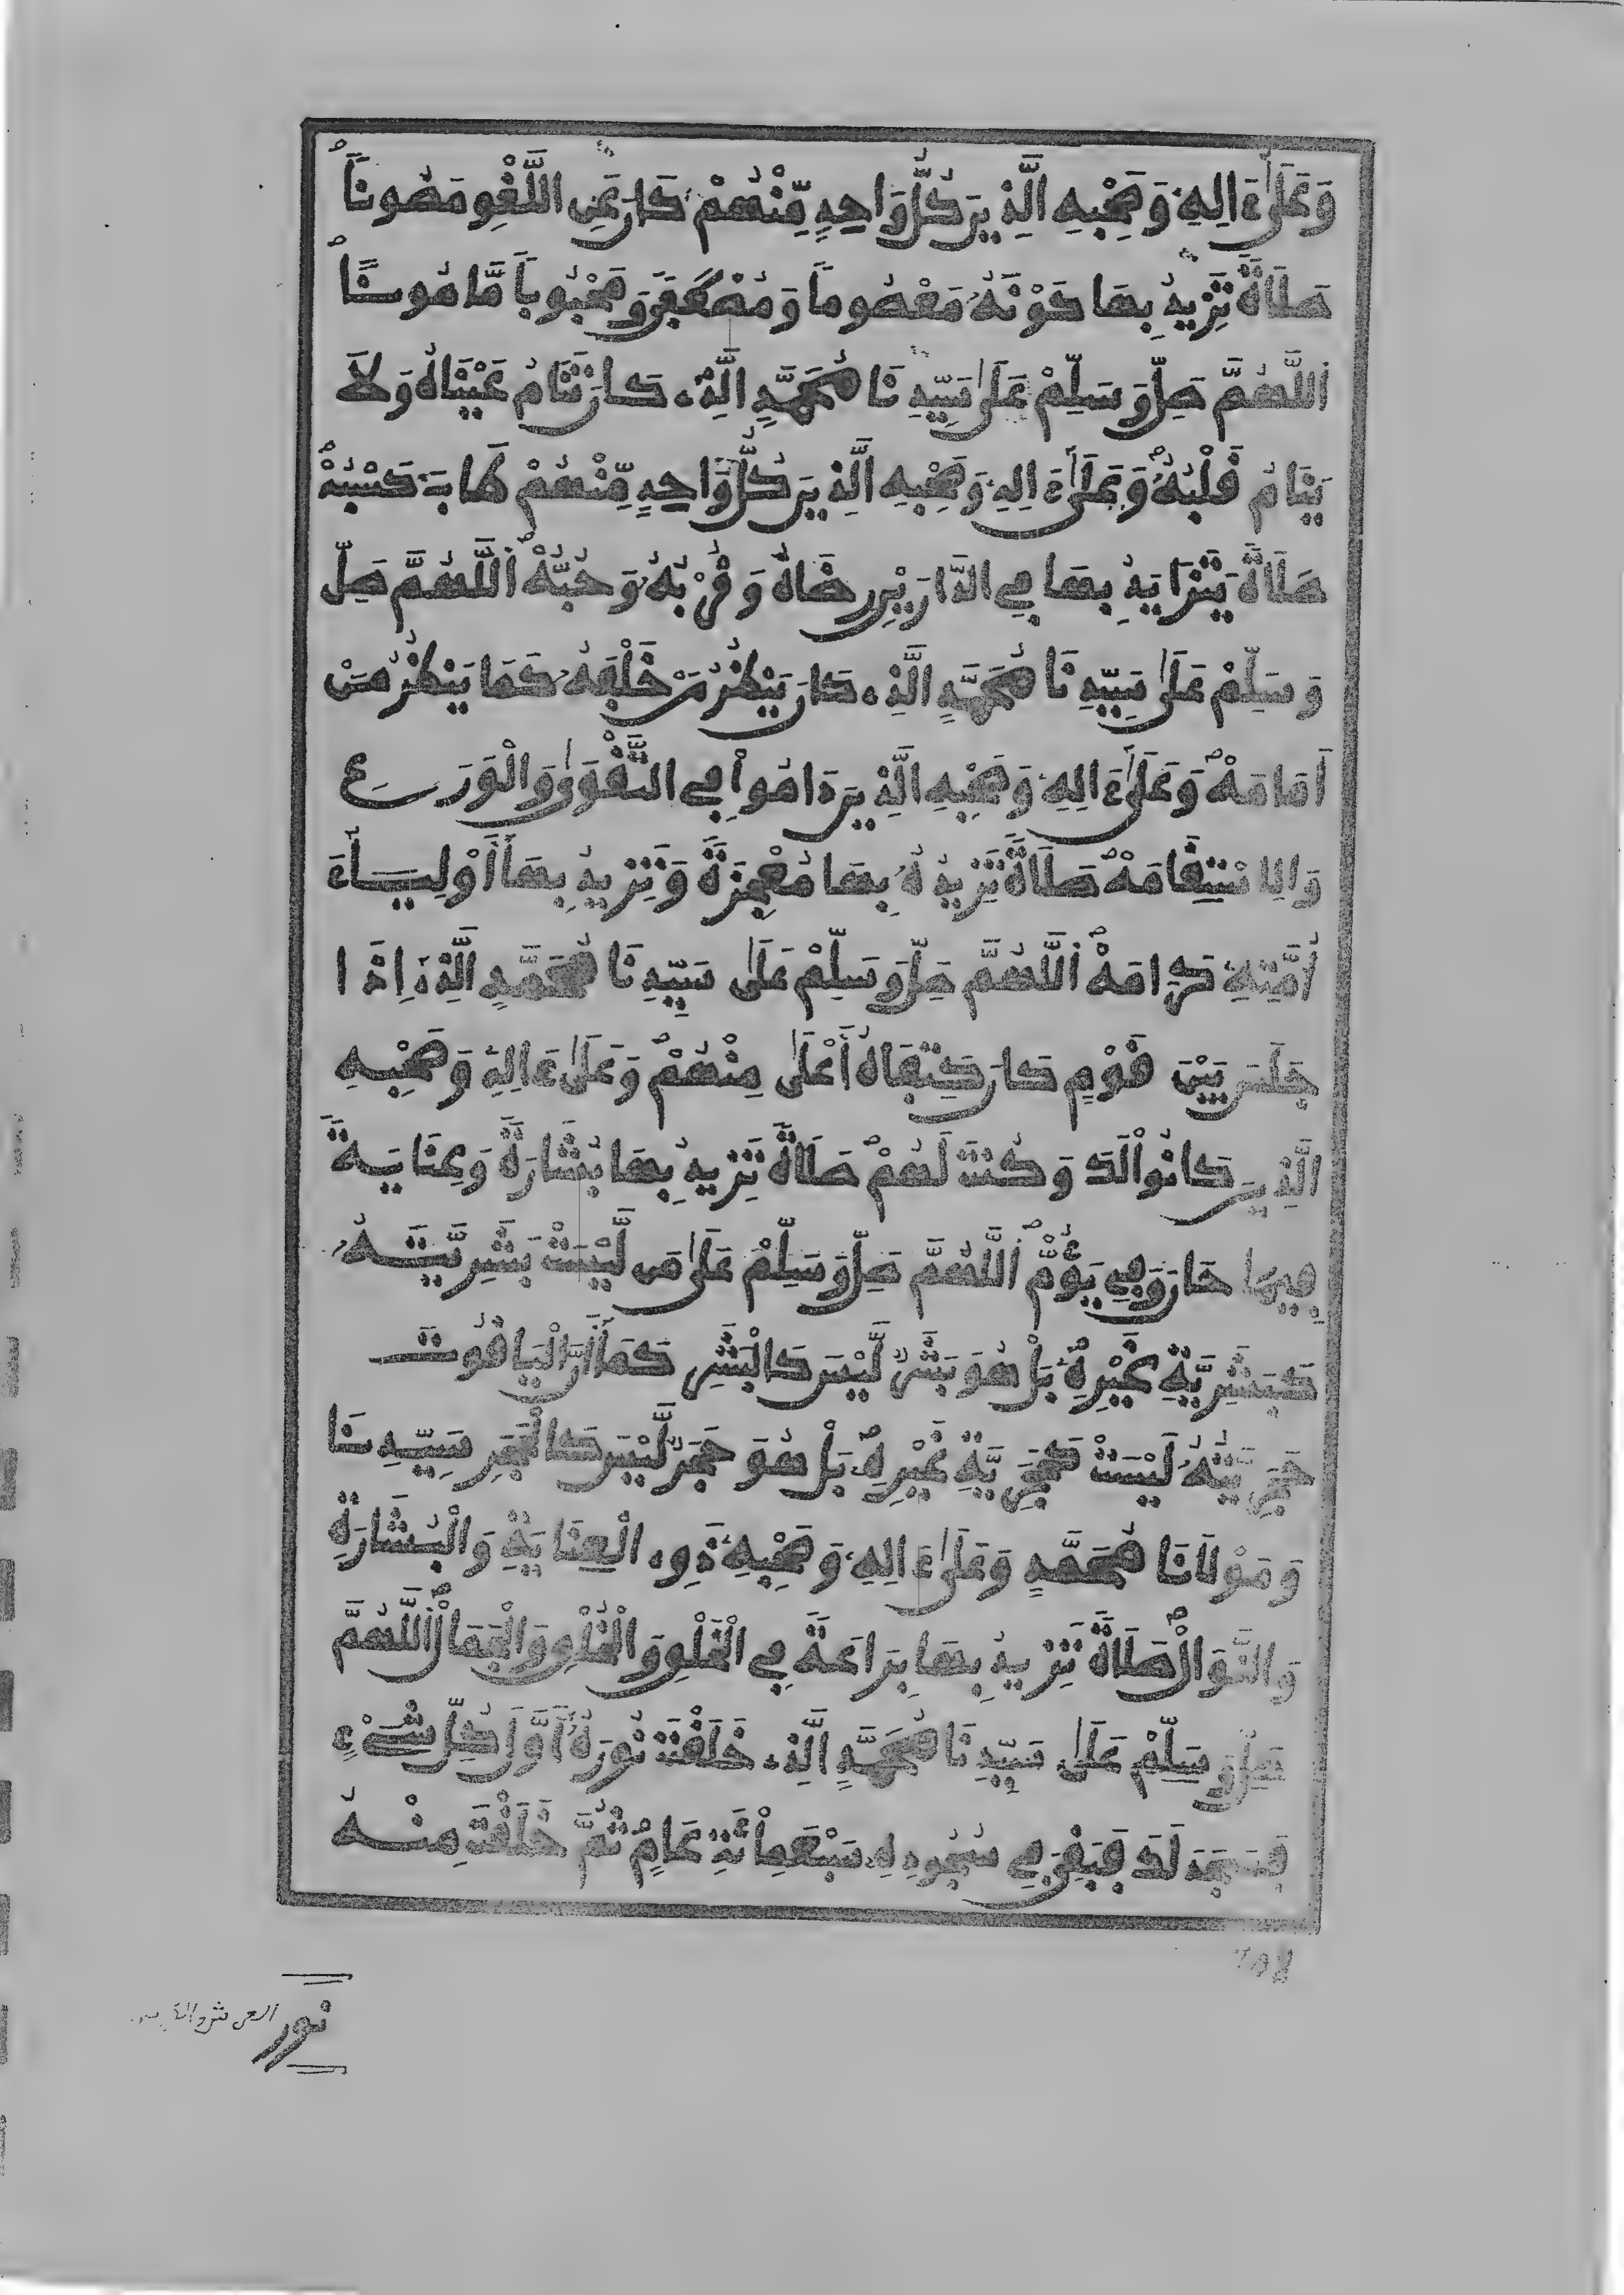 وَعَلَىٰ ءَالِهِ وَصَحْبِهِ الَّذِينَ كُلُّ وَاحِدٍ مِّنْهُمْ كَانَ عَنِ اللَّغْوِ مَصُوناً
صَلَاةً تَزِيدُ بِهَا كَوْنَهُ مَعْصُوماً وَمُصْطَفَىً وَمَحْبُوباً مَّامُوناً
اَللَّهُمَّ صَلِّ وَسَلِّمْ عَلَىٰ سَيِّدِنَا مُحَمَّدٍ الَّذِي كَانَ تَنَامُ عَيْنَاهُ وَلَا
يَنَامُ قَلْبُهُ وَعَلَىٰ ءَالِهِ وَصَحْبِهِ الَّذِينَ كُلُّ وَاحِدٍ مِّنْهُمْ طَابَ كَسْبُهُ
صَلَاةً يَتَزَايَدُ بِهَا فِي الدَّارَيْنِ رِضَاهُ وَقُرْبُهُ وَحُبُّهُ اَللَّهُمَّ صَلِّ
وَسَلِّمْ عَلَىٰ سَيِّدِنَا مُحَمَّدٍ الَّذِي كَانَ يَنظُرُ مَنْ خَلْفَهُ كَمَا يَنظُرُ مَنْ
أَمَامَهُ وَعَلَىٰ ءَالِهِ وَصَحْبِهِ الَّذِينَ دَامُواْ فِي التَّقْوَىٰ وَالْوَرَعِ
وَالِاسْتِقَامَهْ صَلَاةً تَزِيدُهُ بِهَا مُعْجِزَةً وَتَزِيدُ بِهَا أَوْلِيَاءَ
أُمَّتِهِ كَرَامَهْ اَللَّهُمَّ صَلِّ وَسَلِّمْ عَلَىٰ سَيِّدِنَا مُحَمَّدٍ الَّذِي إِذَا
جَلَسَ بَيْنَ قَوْمٍ كَانَ كَتِفَاهُ أَعْلَىٰ مِنْهُمْ وَعَلَىٰ ءَالِهِ وَصَحْبِهِ
الَّذِينَ كَانُواْ لَكَ وَكُنتَ لَهُمْ صَلَاةً تَزِيدُ بِهَا بُشَارَةً وَعِنَايَةً
فِيمَا حَازَ وَفِي يَؤُمُّ اَللَّهُمَّ صَلِّ وَسَلِّمْ عَلَىٰ مَن لَّيْسَتْ بَشَرِيَّتُهُ
كَبَشَرِيَّةِ غَيْرِهِ بَلْ هُوَ بَشَرٌ لَّيْسَ كَالْبَشَرِ كَمَا أَنَّ الْيَاقُوتَ
حَجَرِيَّتُهُ لَيْسَتْ كَحَجَرِيَّةِ غَيْرِهِ بَلْ هُوَ حَجَرٌ لَّيْسَ كَالْحَجَرِ سَيِّدِنَا
وَمَوْلَانَا مُحَمَّدٍ وَعَلَىٰ ءَالِهِ وَصَحْبِهِ ذَوِي الْعِنَايَةِ وَالْبُشَارَةِ
وَالنَّوَالْ صَلَاةً تَزِيدُ بِهَا بَرَاعَةً فِي الْخَلْقِ وَالْخُلْقِ وَالْجَمَالْ اَللَّهُمَّ
صَلِّ وَسَلِّمْ عَلَىٰ سَيِّدِنَا مُحَمَّدٍ الَّذِي خَلَقْتَ نُورَهُ أَوَّلَ كُلِّ شَيْءٍ
فَسَجَدَ لَكَ فَبَقِيَ فِي سُجُودِهِ سَبْعَمِائَةِ عَامٍ ثُمَّ خَلَقْتَ مِنْهُ
نور